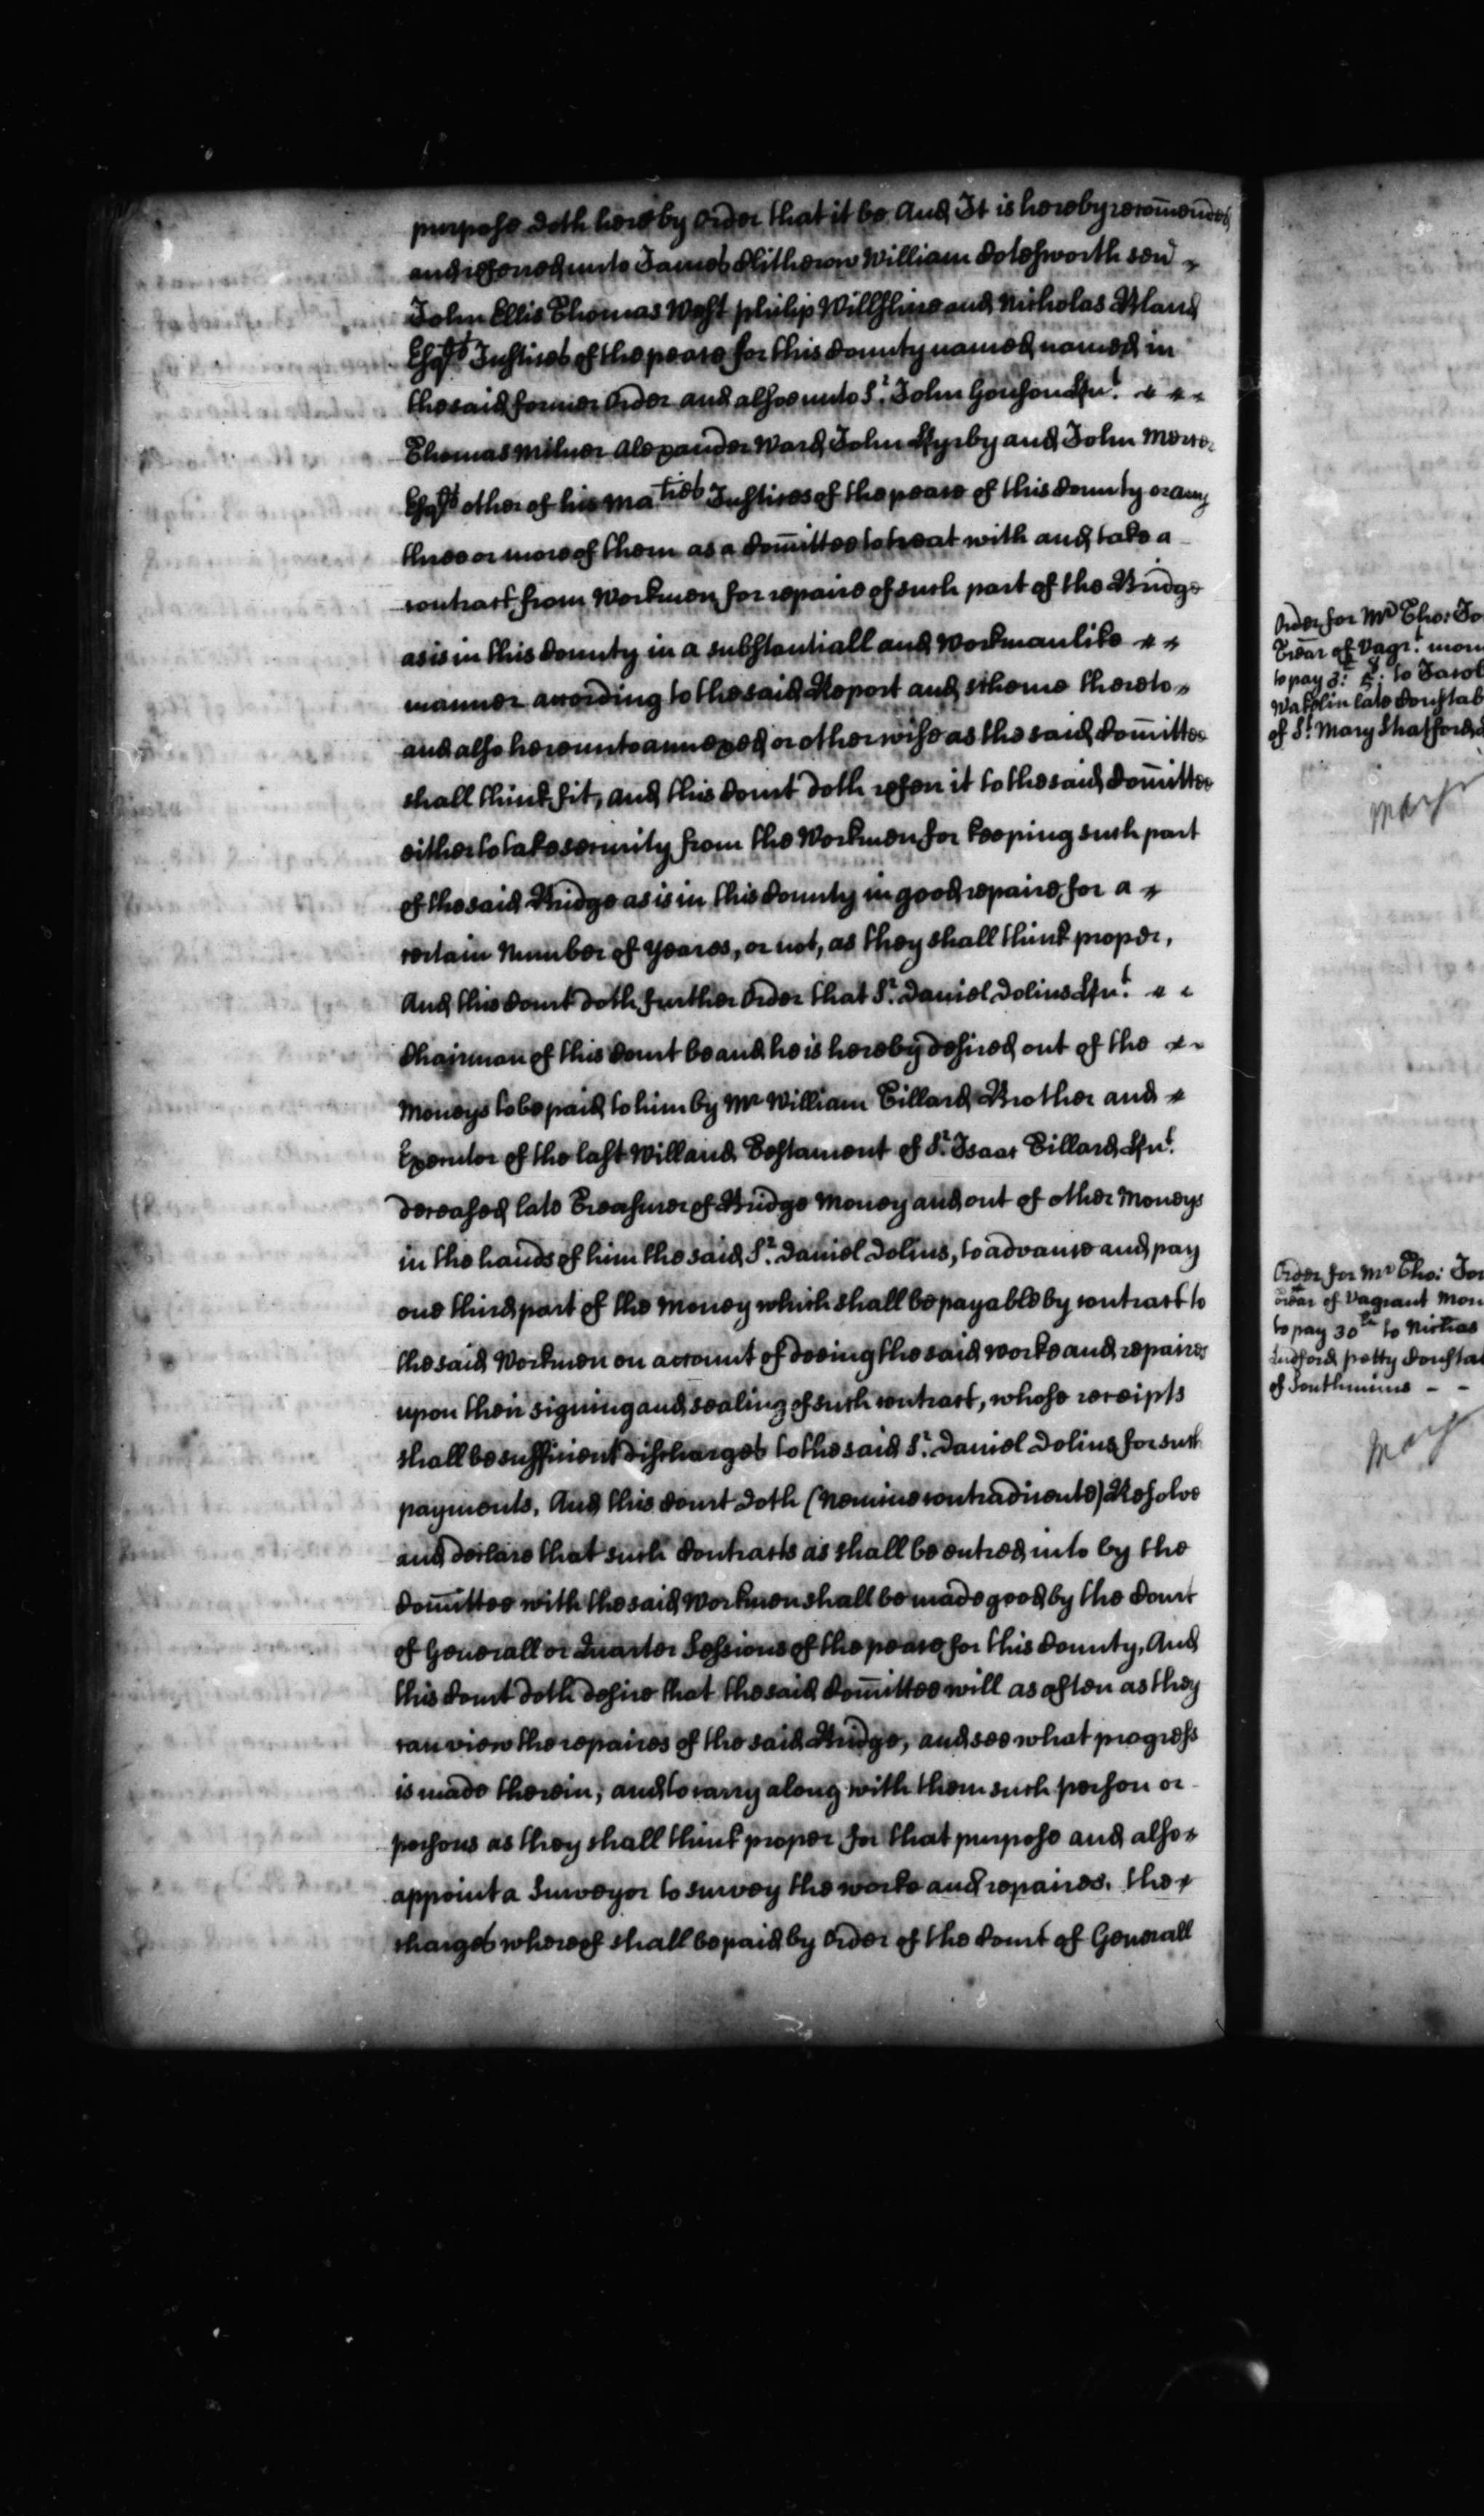 purpose doth hereby Order that it be And It is hereby recom̄ended
and referred unto James Clitherow William Cotesworth sen̄
John Ellis Thomas West philip Willshire and Nicholas Bland
Esq.rs Justices of the peace for this County named named in
the said former Order and alsoe unto S.r John Gonson Kn.t
Thomas Milner Alexander Ward John Kyrby and John Mercer
Esq.rs other of his Ma.ties Justices of the peace of this County or any
three or more of them as a Com̄ittee to treat with and take a
contract from Workmen for repaire of such part of the Bridge
as is in this County in a substantiall and Workmanlike
manner according to the said Report and scheme thereto
and also hereunto annexed or otherwise as the said Com̄ittee
shall think fit, and this Court doth referr it to the said Com̄ittee
either to take security from the Workmen for keeping such part
of the said Bridge as is in this County in good repaire for a
certain Number of Yeares, or not, as they shall think proper,
And this Court doth further Order that S.r Daniel Dolins Kn.t
Chairman of this Court be and he is hereby desired out of the
Moneys to be paid to him by Mr William Tillard Brother and
Executor of the last Will and Testament of S.r Isaac Tillard Kn.t
deceased late Treasurer of Bridge Money and out of other Moneys
in the hands of him the said S.r Daniel Dolins, to advance and pay
one third part of the Money which shall be payable by contract to
the said Workmen on account of doeing the said worke and repaires
upon their signing and sealing of such contract, whose receipts
shall be sufficient discharges to the said S.r Daniel Dolins for such
payments. And this Court doth (Nemine contradicente) Resolve
and declare that such Contracts as shall be entred into by the
Com̄ittee with the said Workmen shall be made good by the Court
of Generall or Quarter Sessions of the peace for this County, And
this Court doth desire that the said Com̄ittee will as often as they
can view the repaires of the said Bridge, and see what progress
is made therein, and to carry along with them such person or
persons as they shall think proper for that purpose and also
appoint a Surveyor to survey the worke and repaires. the
charges whereof shall be paid by Order of the Court of Generall
Order for Mr Tho: Jo
Trẽar of Vagr.t mon
to pay 3: 5: to Jacob
Wakelin late Constab
of S.t Mary Stratford
Order for Mr Tho: Jo
trẽar of Vagrant Mon
to pay 30 to Nichas
Ludford petty Constab
of Southmims